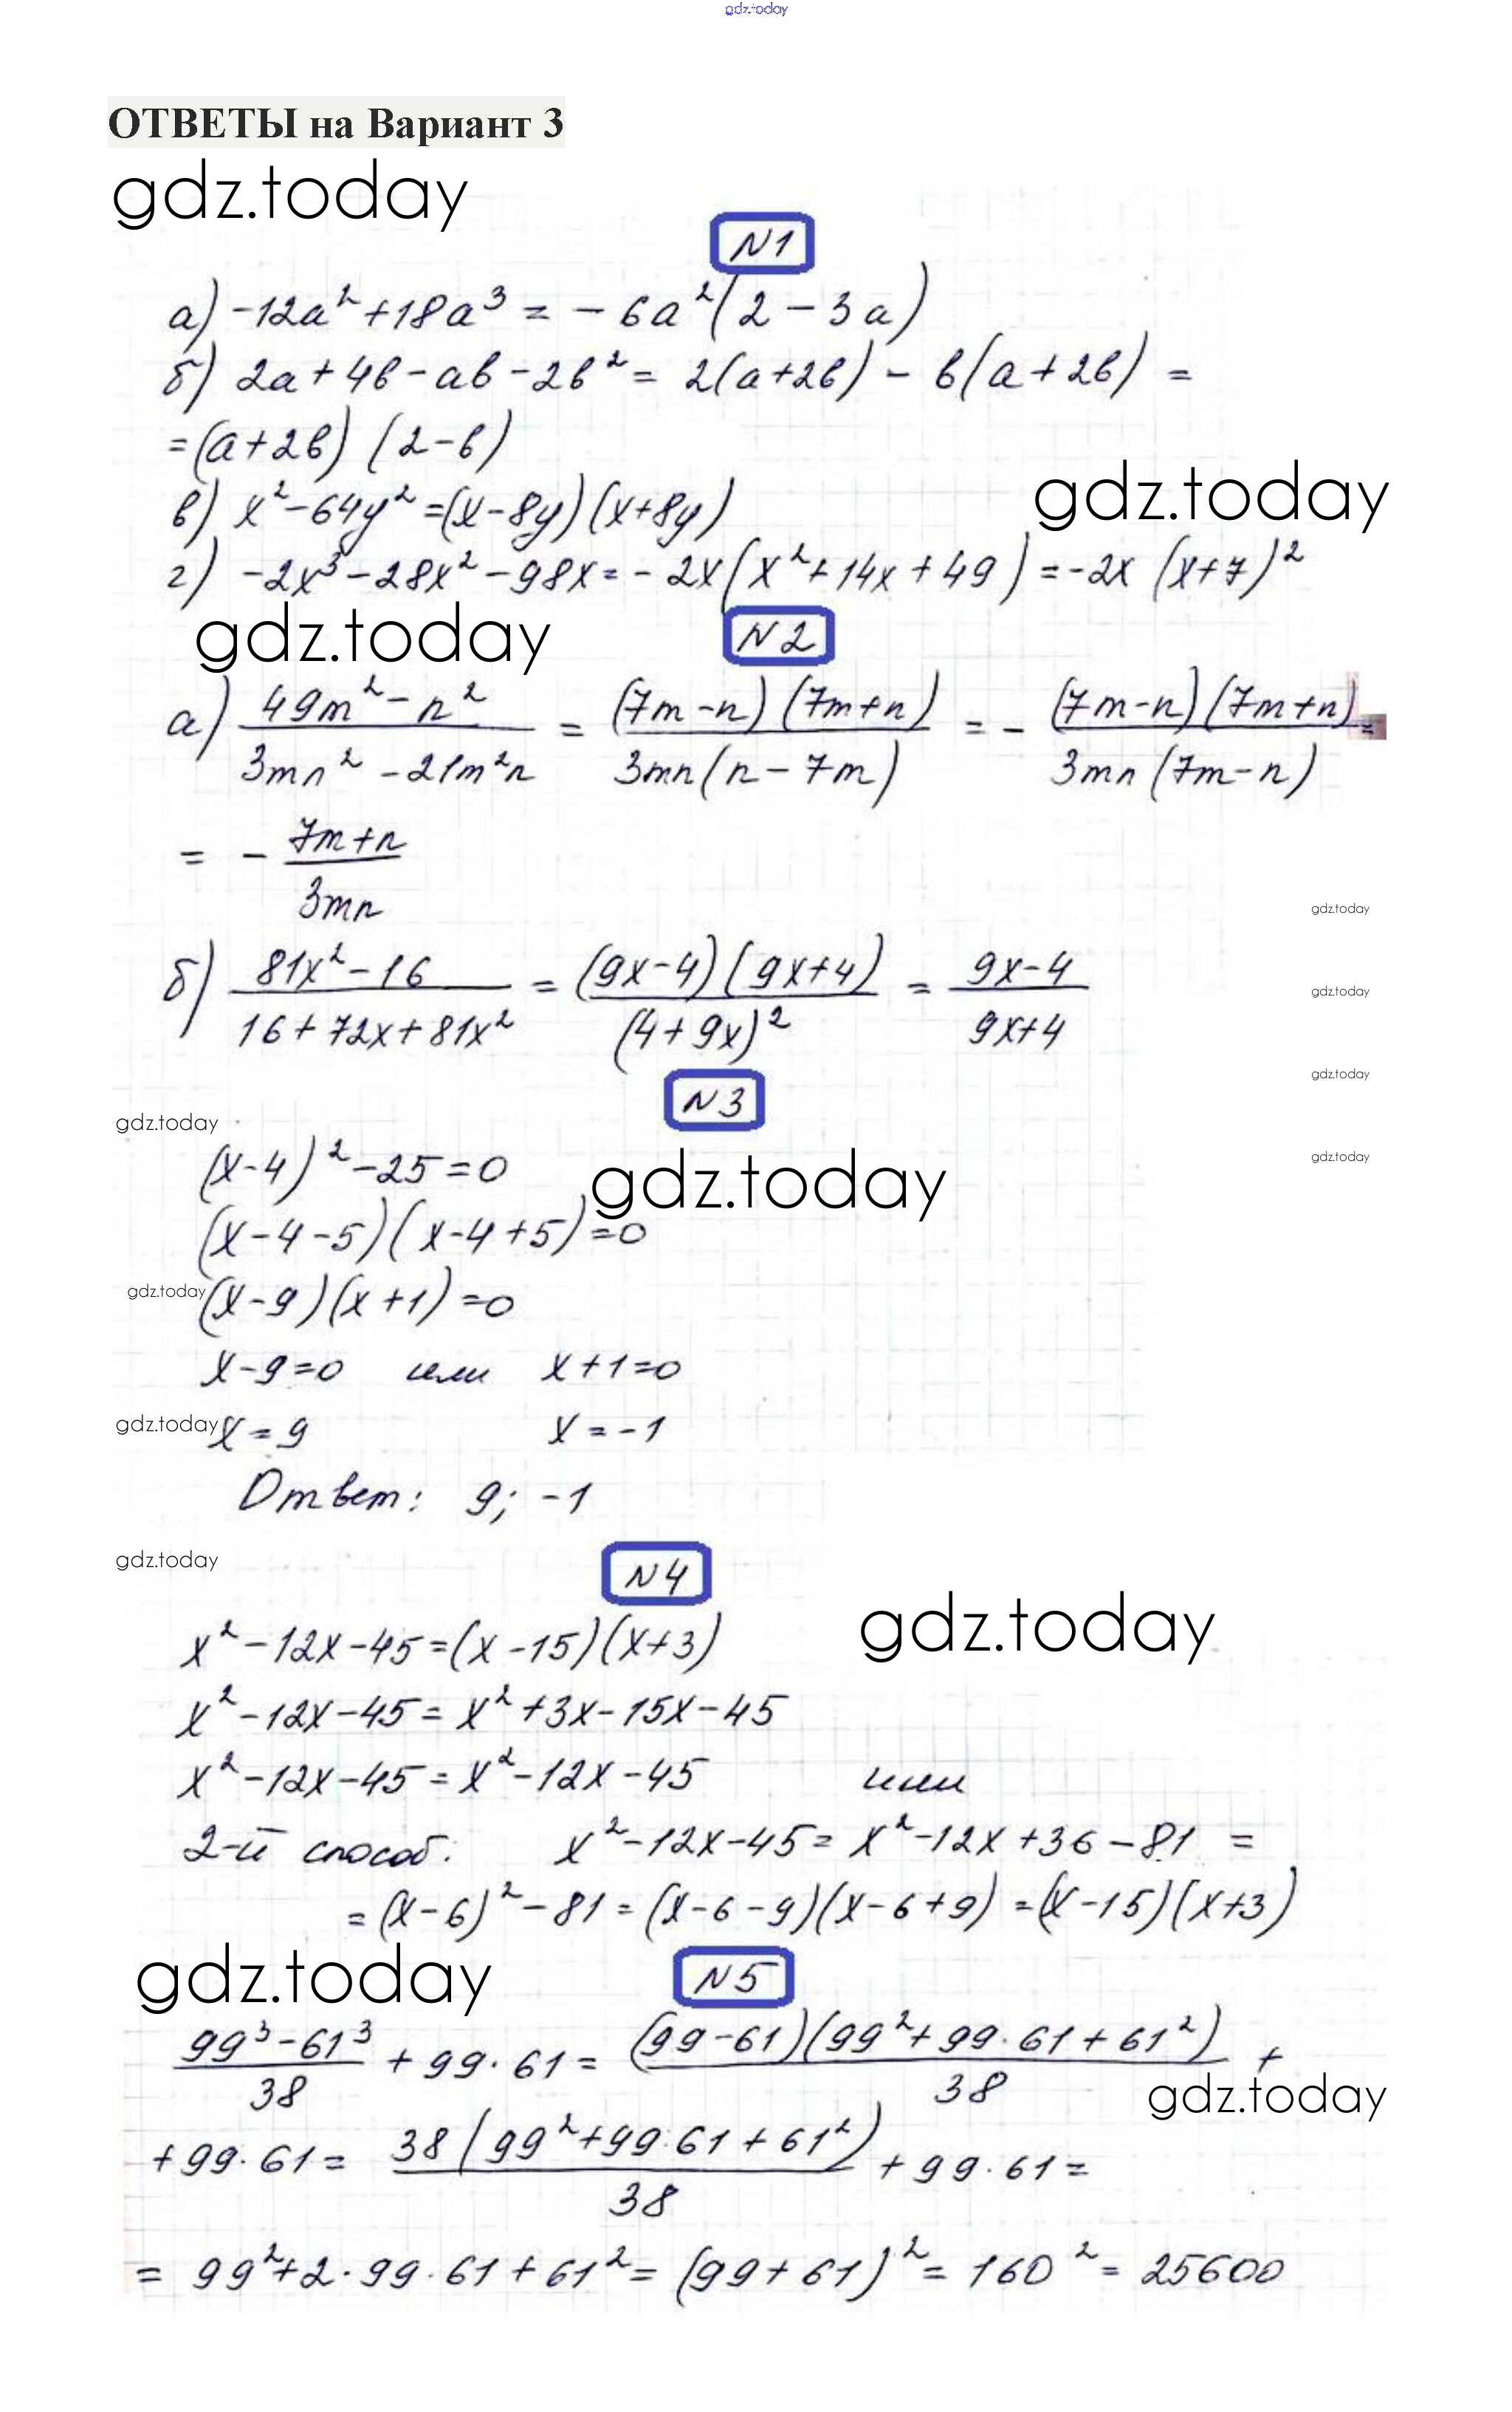 gdz.today
ОТВЕТЫ на Вариант 3
gdz.today
N1
а) -12a² + 18a³ = - 6a²(2 - 3a)
б) 2a + 4в - aв - 2в² = 2(a+2в) - в(a+2в) =
= (a+2в) (2-в)
gdz.today
в) x² - 64y² = (x-8y)(x+8y)
г) -2x³ - 28x² - 98x = - 2x(x² + 14x + 49) = -2x (x+7)²
gdz.today
N2
а) (49m² - n²)/(3mn² - 21m²n) = ((7m-n)(7m+n))/(3mn(n-7m)) = - ((7m-n)(7m+n))/(3mn(7m-n)) =
= - (7m+n)/(3mn)
gdz.today
б) (81x² - 16)/(16 + 72x + 81x²) = ((9x-4)(9x+4))/((4+9x)²) = (9x-4)/(9x+4)
gdz.today
gdz.today
N3
gdz.today
gdz.today
(x-4)² - 25 = 0
gdz.today
(x-4-5)(x-4+5) = 0
gdz.today
(x-9)(x+1) = 0
x-9=0 или x+1=0
gdz.today
x = 9 x = -1
Ответ: 9; -1
gdz.today
N4
gdz.today
x² - 12x - 45 = (x-15)(x+3)
x² - 12x - 45 = x² + 3x - 15x - 45
x² - 12x - 45 = x² - 12x - 45 или
2-й способ: x² - 12x - 45 = x² - 12x + 36 - 81 =
= (x-6)² - 81 = (x-6-9)(x-6+9) = (x-15)(x+3)
gdz.today
N5
(99³ - 61³)/38 + 99·61 = ((99-61)(99² + 99·61 + 61²))/38 +
gdz.today
+ 99·61 = (38(99² + 99·61 + 61²))/38 + 99·61 =
= 99² + 2·99·61 + 61² = (99+61)² = 160² = 25600